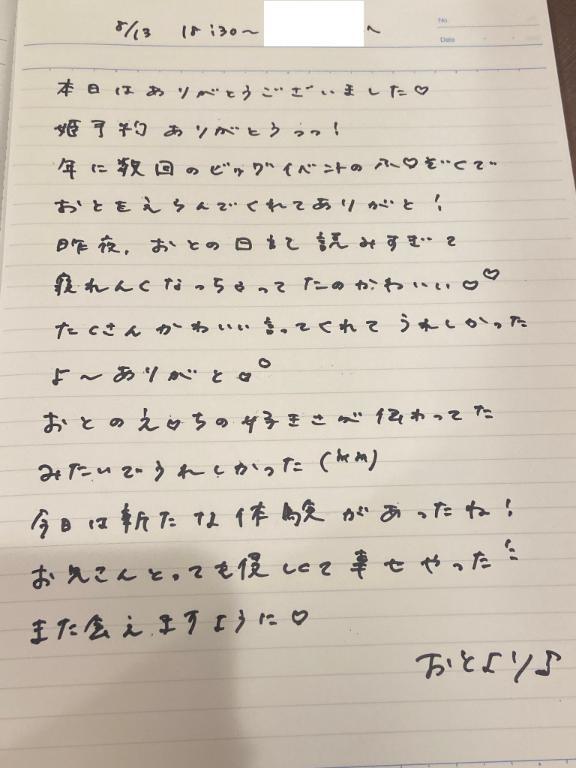 8/13 18:30〜 へ
No.
Date
本日はありがとうございました♡
姫予約ありがとうっっ!
年に数回のビッグイベントのふ♡ぞくで
おとをえらんでくれてありがと!
昨夜、おとの日記読みすぎて
寝れんくなっちゃってたのかわいい♡♡
たくさんかわいい言ってくれてうれしかった
よ〜ありがと♡○
おとのえ♡ちの好きさが伝わってた
みたいでうれしかった(
今日は新たな体験があったね!
お兄さんとっても優しくて幸せやった
また会えますように♡
おとより♪